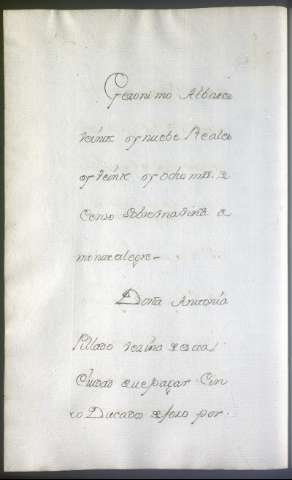 Geronimo Albares
veinte y nuebe Reales
y veinte y ocho mrs. de
Censo sobre una viña a
montealegre-
Doña Antonia
vezina de esta
Ciudad deue pagar Cin
co Ducados de fuero por.